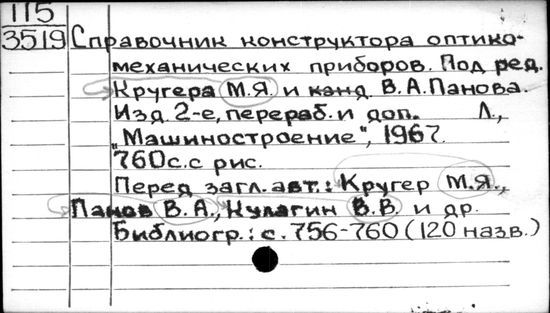 115
3519 Справочник конструктора оптико-
механических приборов. Под ред.
Кругера М.Я. и канд В.А.Панова.
Изд 2-е, перераб. и доп. Л.,
„Машиностроение", 1967.
760с.с рис.
Перед загл. авт.: Кругер М.Я.,
Панов В.А., Кулагин В.В. и др.
Библиогр.: с. 756-760 (120 назв.)